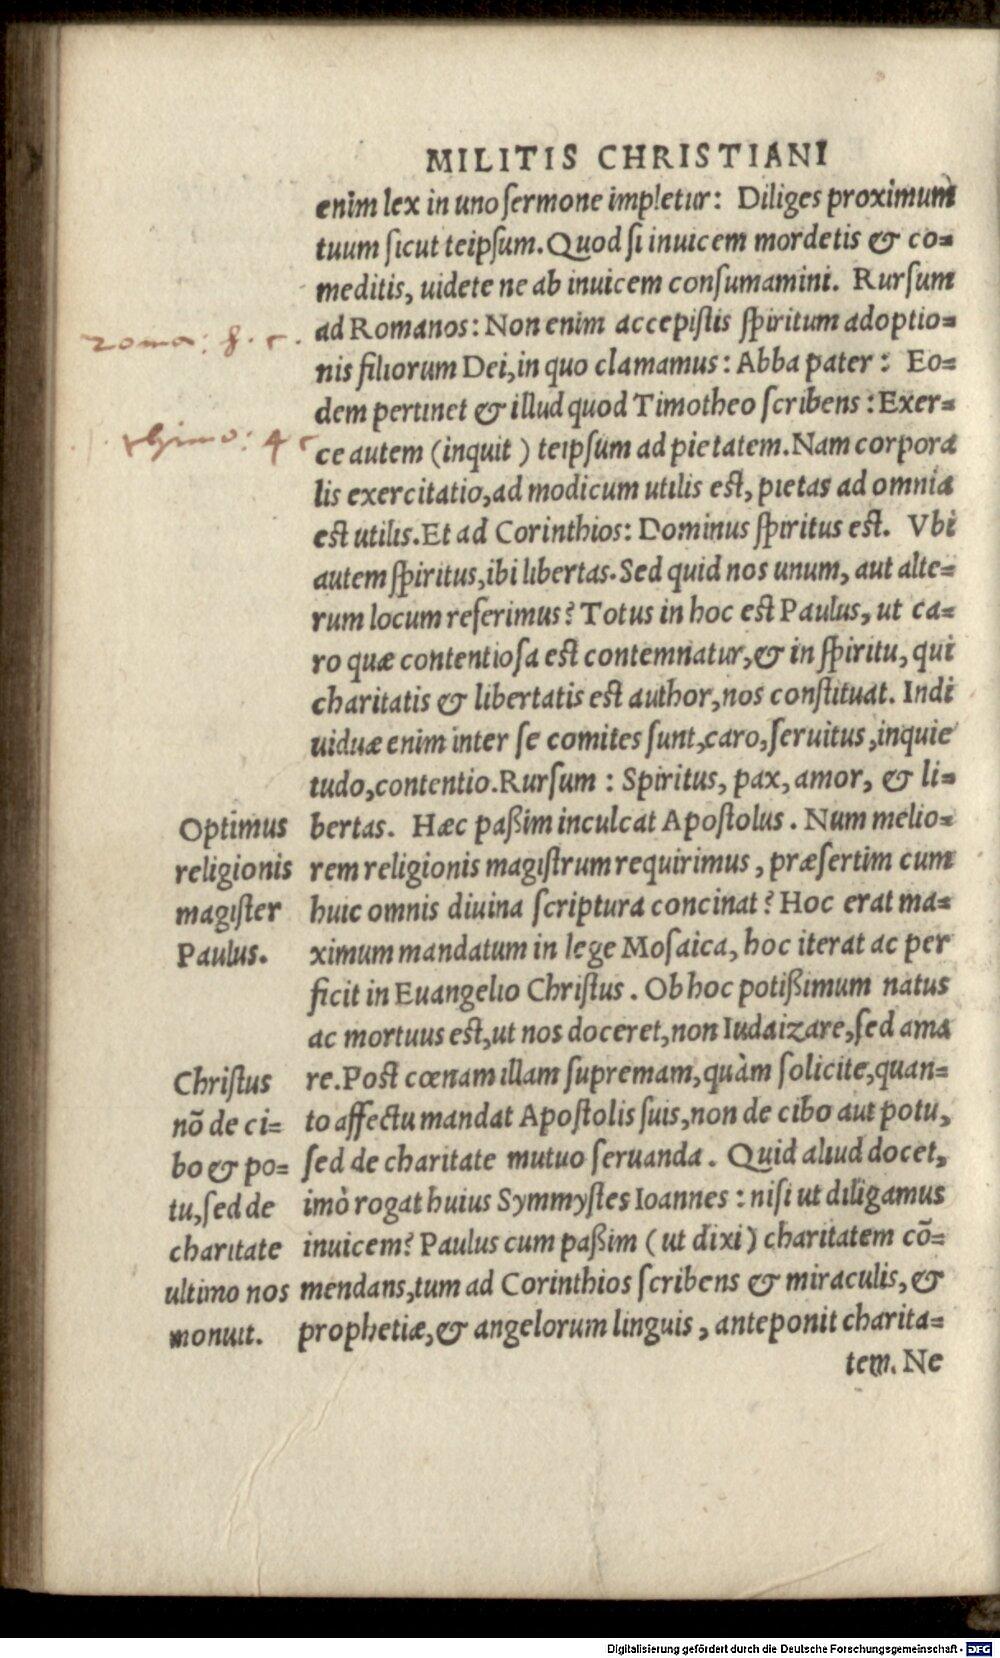 MILITIS CHRISTIANI
enim lex in uno sermone impletur: Diliges proximum
tuum sicut teipsum. Quod si inuicem mordetis & co=
meditis, uidete ne ab inuicem consumamini. Rursum
roma: 8. c.
ad Romanos: Non enim accepistis spiritum adoptio=
nis filiorum Dei, in quo clamamus: Abba pater: Eo=
dem pertinet & illud quod Timotheo scribens: Exer=
thimo: 4 c
ce autem (inquit) teipsum ad pietatem. Nam corpora
lis exercitatio, ad modicum utilis est, pietas ad omnia
est utilis. Et ad Corinthios: Dominus spiritus est. Vbi
autem spiritus, ibi libertas. Sed quid nos unum, aut alte=
rum locum referimus? Totus in hoc est Paulus, ut ca=
ro quæ contentiosa est contemnatur, & in spiritu, qui
charitatis & libertatis est author, nos constituat. Indi
uiduæ enim inter se comites sunt, caro, seruitus, inquie
tudo, contentio. Rursum: Spiritus, pax, amor, & li=
bertas. Hæc paßim inculcat Apostolus. Num melio=
rem religionis magistrum requirimus, præsertim cum
huic omnis diuina scriptura concinat? Hoc erat ma=
ximum mandatum in lege Mosaica, hoc iterat ac per
ficit in Euangelio Christus. Ob hoc potißimum natus
ac mortuus est, ut nos doceret, non Iudaizare, sed ama
re. Post cœnam illam supremam, quàm solicite, quan=
to affectu mandat Apostolis suis, non de cibo aut potu,
sed de charitate mutuo seruanda. Quid aliud docet,
imò rogat huius Symmystes Ioannes: nisi ut diligamus
inuicem? Paulus cum paßim (ut dixi) charitatem cõ=
mendans, tum ad Corinthios scribens & miraculis, &
prophetiæ, & angelorum linguis, anteponit charita=
tem. Ne
Optimus
religionis
magister
Paulus.
Christus
nõ de ci=
bo & po=
tu, sed de
charitate
ultimo nos
monuit.
Digitalisierung gefördert durch die Deutsche Forschungsgemeinschaft - DFG